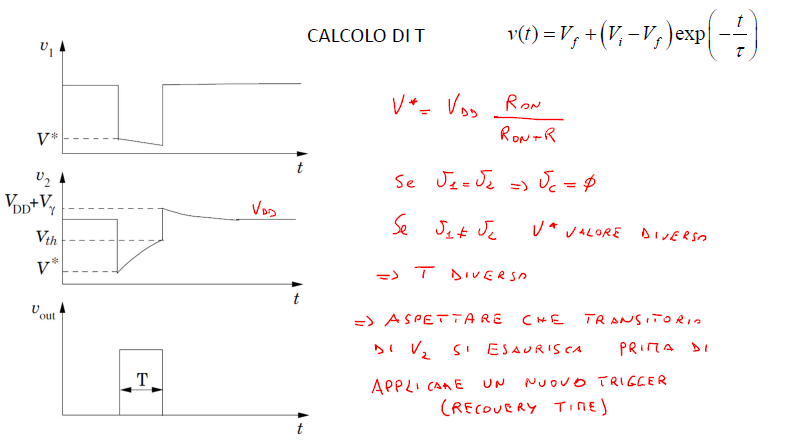 CALCOLO DI T
v(t) = V_f + (V_i − V_f) exp(− t/τ)
v₁
V*
t
v₂
V_DD+V_γ
V_DD
V_th
V*
t
v_out
T
t
V* = V_DD R_ON / R_ON+R
Se v₁=v₂ => v_c = ∅
Se v₁≠v₂ V* VALORE DIVERSO
=> T DIVERSO
=> ASPETTARE CHE TRANSITORIO
DI V₂ SI ESAURISCA PRIMA DI
APPLICARE UN NUOVO TRIGGER
(RECOVERY TIME)